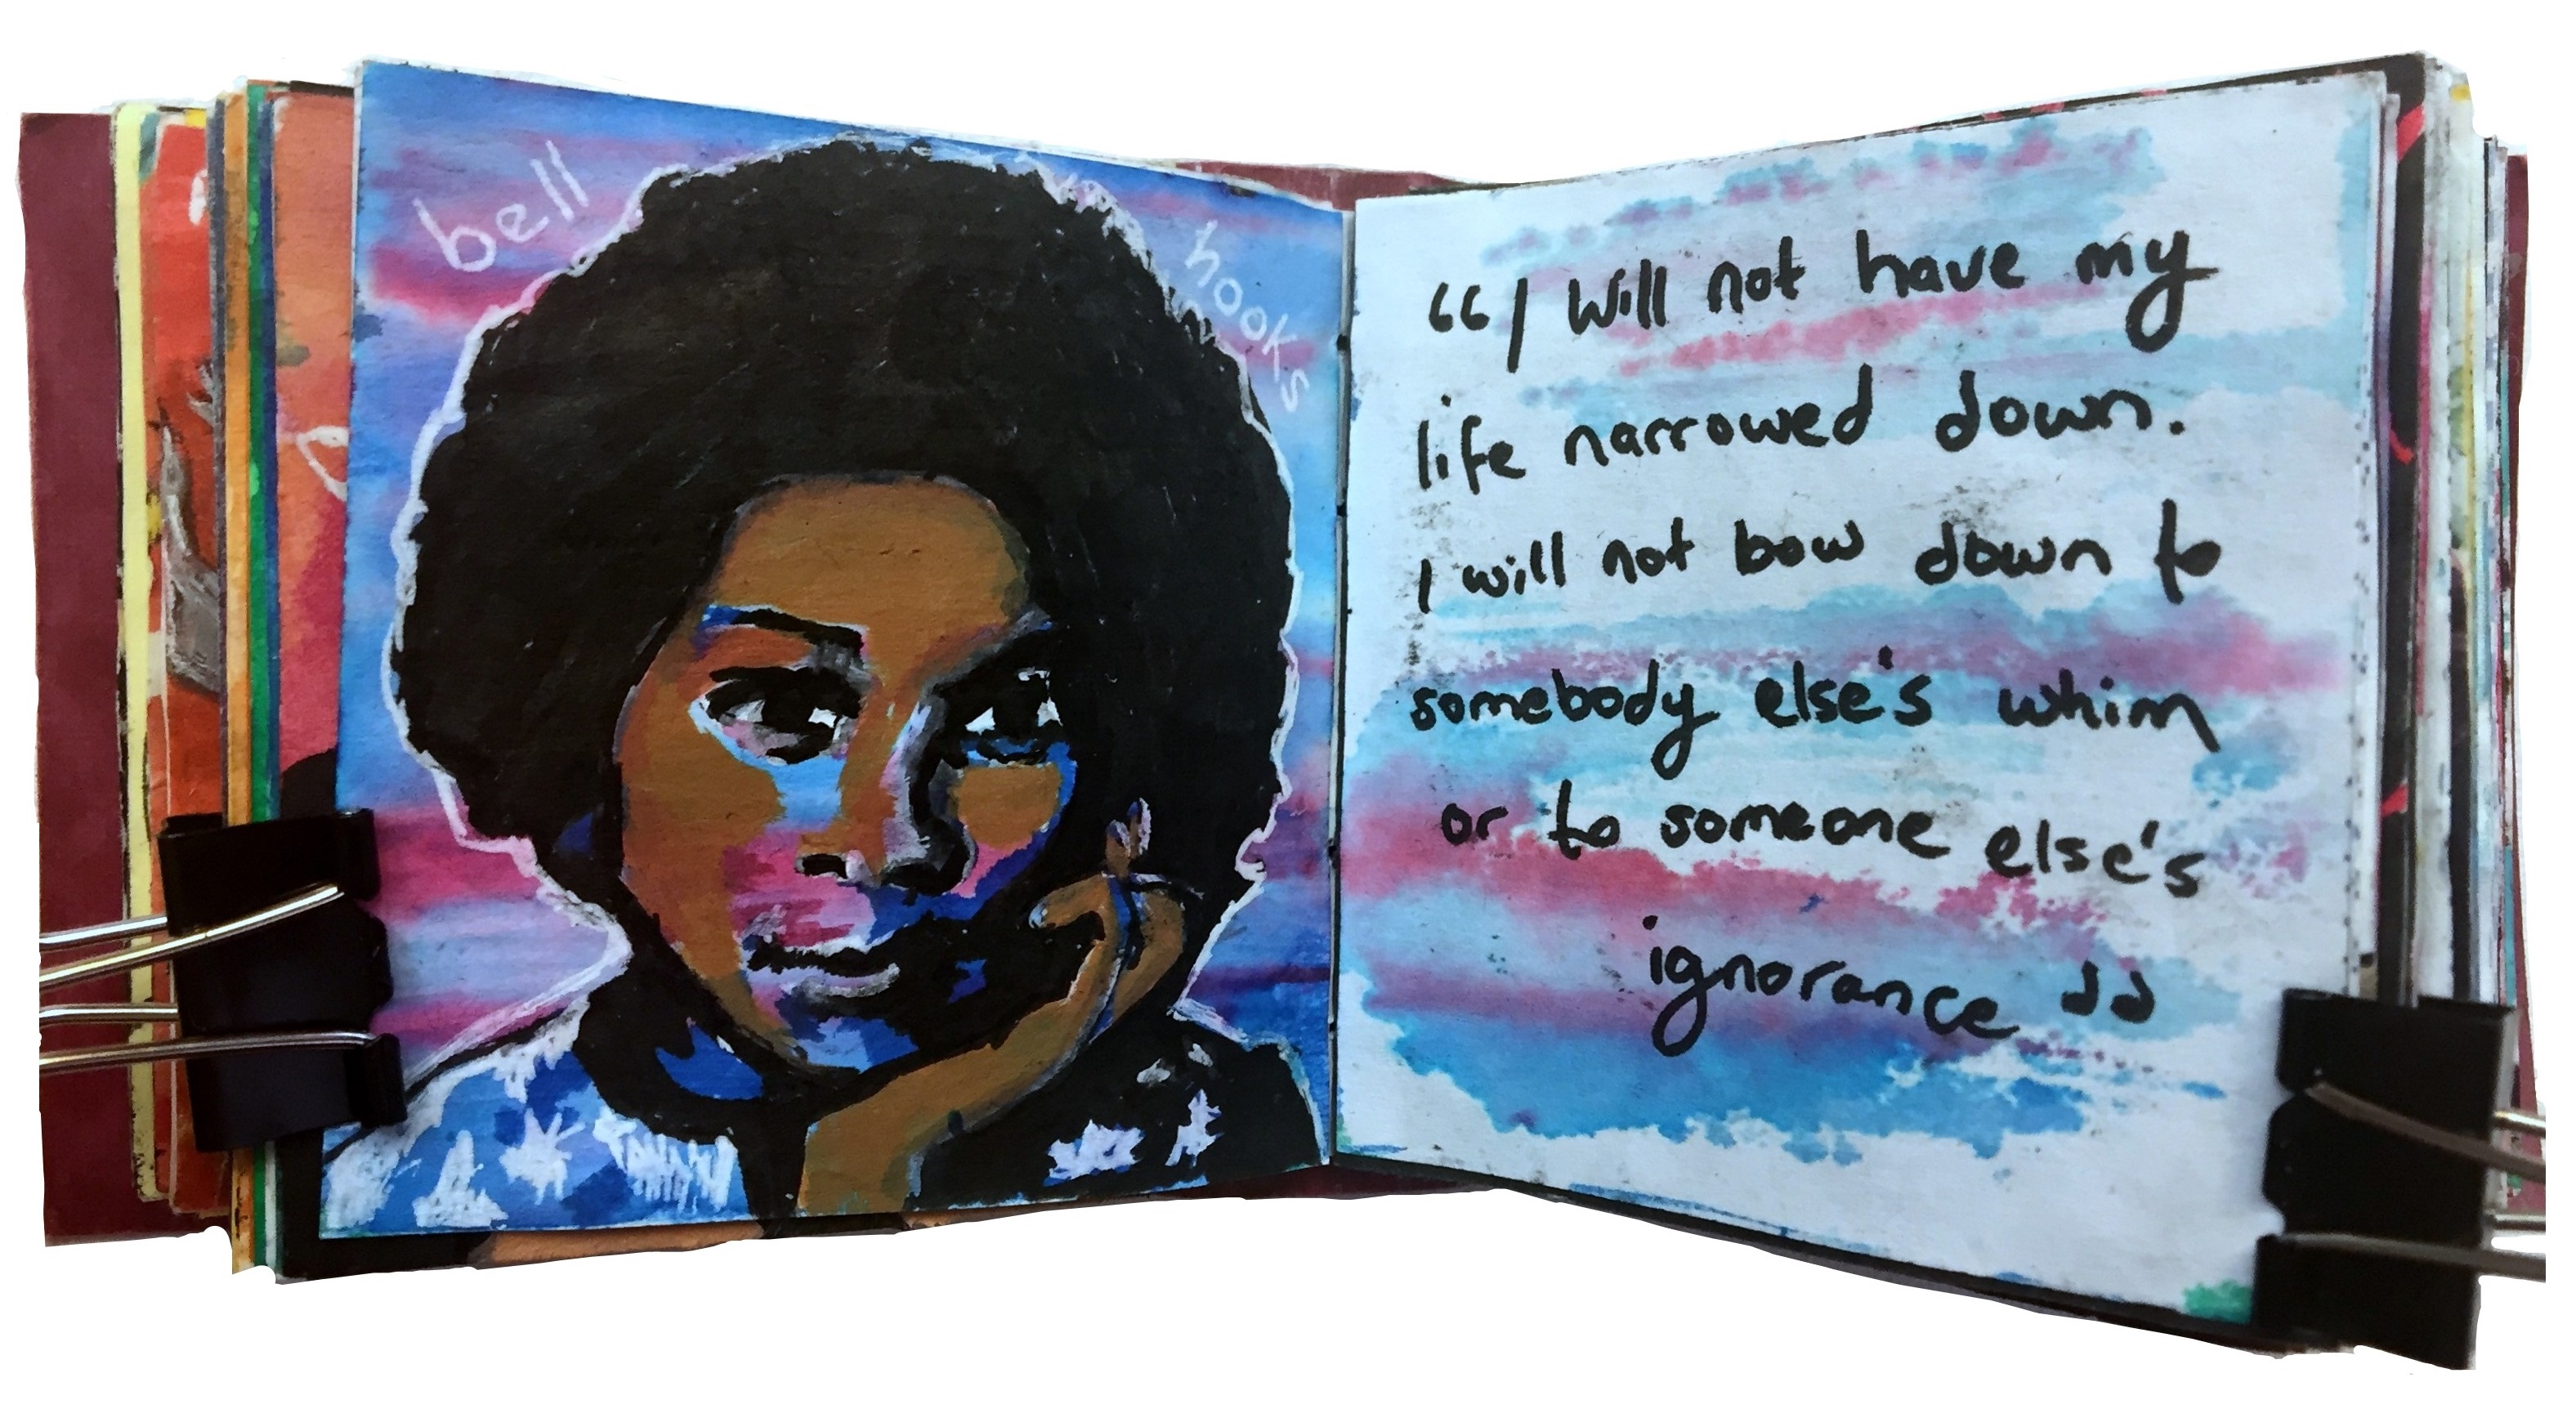 bell
hooks
“I will not have my
life narrowed down.
I will not bow down to
somebody else's whim
or to someone else's
ignorance”